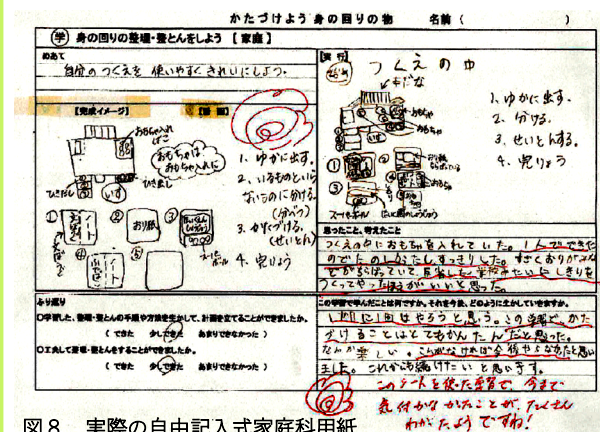 かたづけよう 身の回りの物 名前（ ）
学 身の回りの整理・整とんをしよう 【家庭】
めあて
自分のつくえを使いやすくきれいにしよう。
【完成イメージ】
【計画】
おもちゃ入れ
ばこ
おもちゃは
おもちゃ入れに
ひきだし
いす
ひきだし
① ノート
② おり紙
③
④
⑤
1、ゆかに出す。
2、いるものといら
ないものに分ける。
(分べつ)
3、かたづける。
(せいとん)
4、完りょう
【実行】
つくえの中
本だな
おもちゃ
おもちゃ
1、ゆかに出す。
2、分ける。
3、せいとんする。
4、完りょう
スーパーボール
思ったこと、考えたこと
つくえの中におもちゃを入れていた。1人でできた
のでたのしかったしすっきりした。
学校みたいにしきりを
つくってやったほうがいいと思った。
ふり返り
○学習した、整理・整とんの手順や方法を生かして、計画を立てることができましたか。
（ できた 少しできた あまりできなかった ）
○工夫して整理・整とんをすることができましたか。
（ できた 少しできた あまりできなかった ）
この学習で学んだことは何ですか。それを今後、どのように生かしていきますか。
1週間に1回はやろうと思う。この学習で、かた
づけることはとてもかんたんだと思った。
なんか楽しい。
ました。これからも続けたいと思います。
このシートを使った学習で、今まで
気付かなかったことが、たくさん
わかったようですね!
図8 実際の自由記入式家庭科用紙